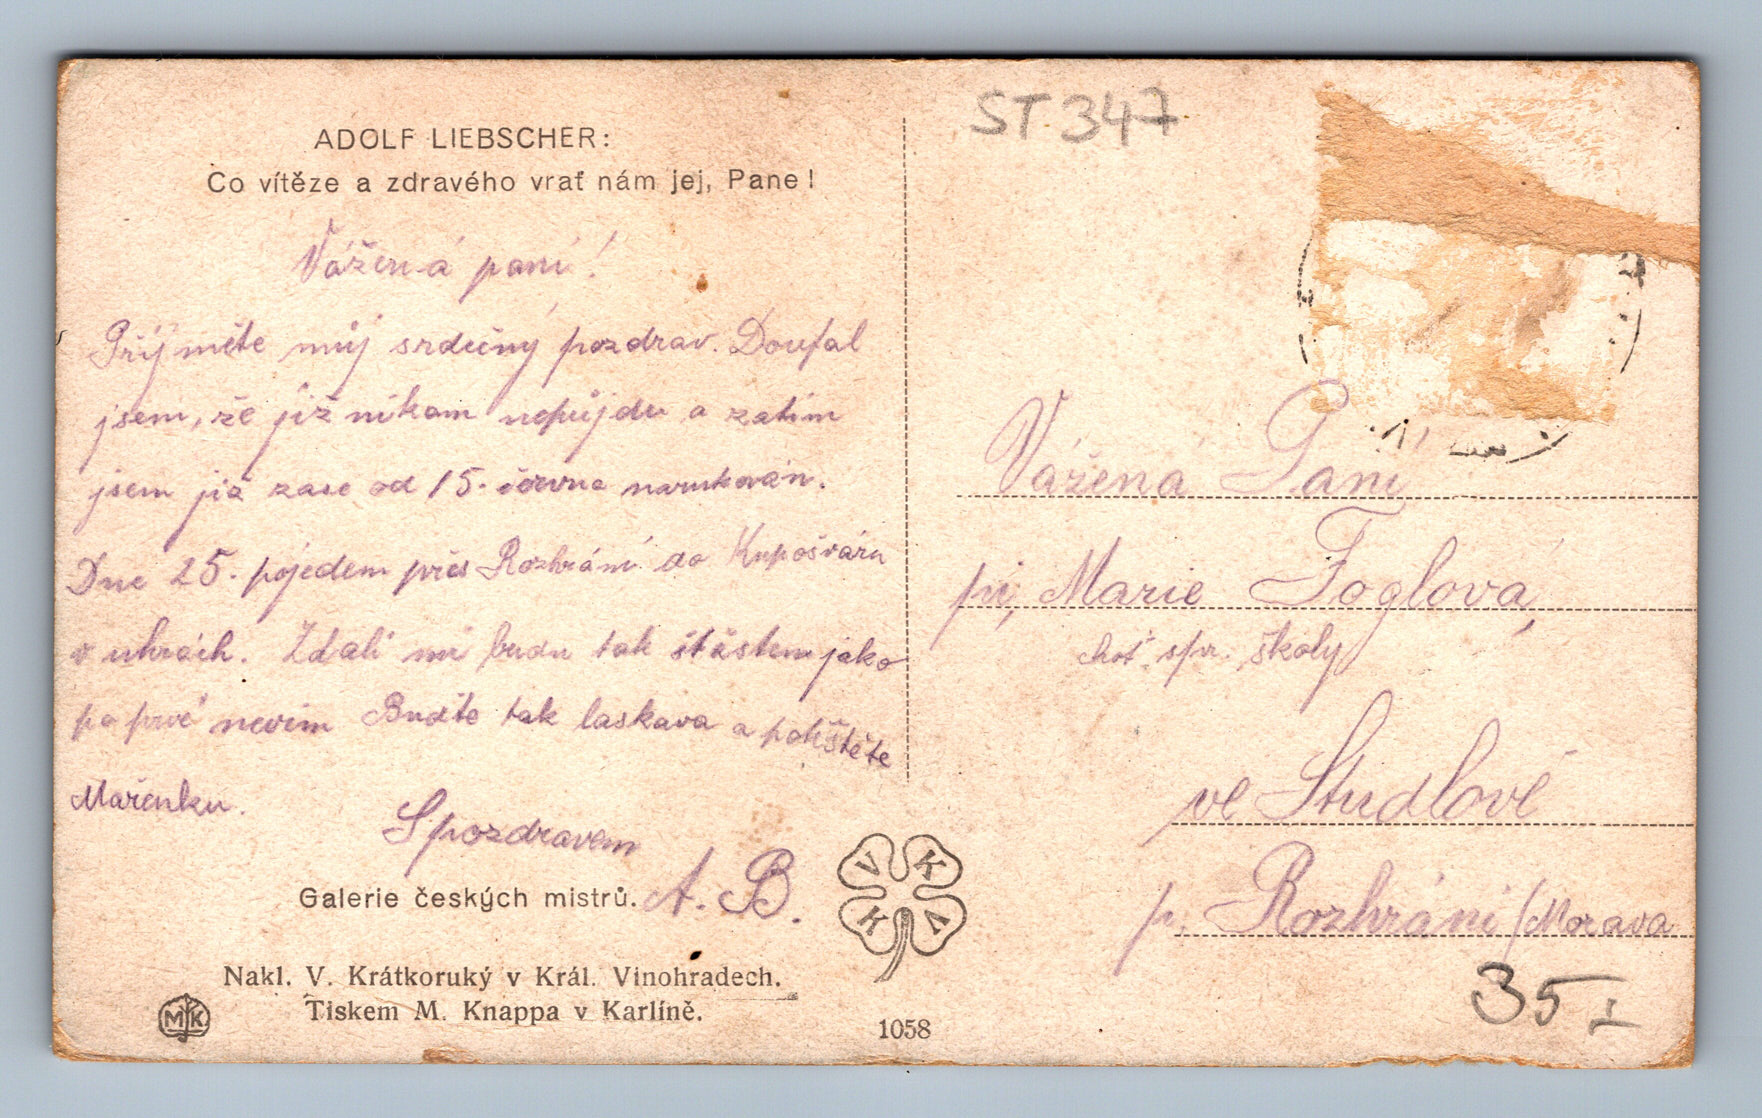 ST 347
ADOLF LIEBSCHER:
Co vítěze a zdravého vrať nám jej, Pane!
Vážená paní!
Přijměte můj srdečný pozdrav. Doufal
jsem, že již nikam nepůjdu a zatím
jsem již zase od 15. června narukován.
Dne 25. pojedem přes Rozhrání do Kupošváru
v uhrách. Zdali mi budu tak šťástem jako
po prvé nevím Buďte tak laskava a potěštěte
Mařenku.
S pozdravem
A. B.
Galerie českých mistrů.
Nakl. V. Krátkoruký v Král. Vinohradech.
Tiskem M. Knappa v Karlíně.
MK
V K K V
1058
Vážená Paní
pí, Marie Foglová,
choť. spr. školy
ve Studlově
p. Rozhrání /Morava
35